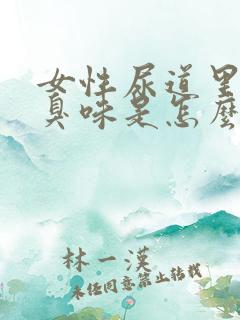 女性尿道里
臭味是怎麽
林一漢
未任同意禁止转载